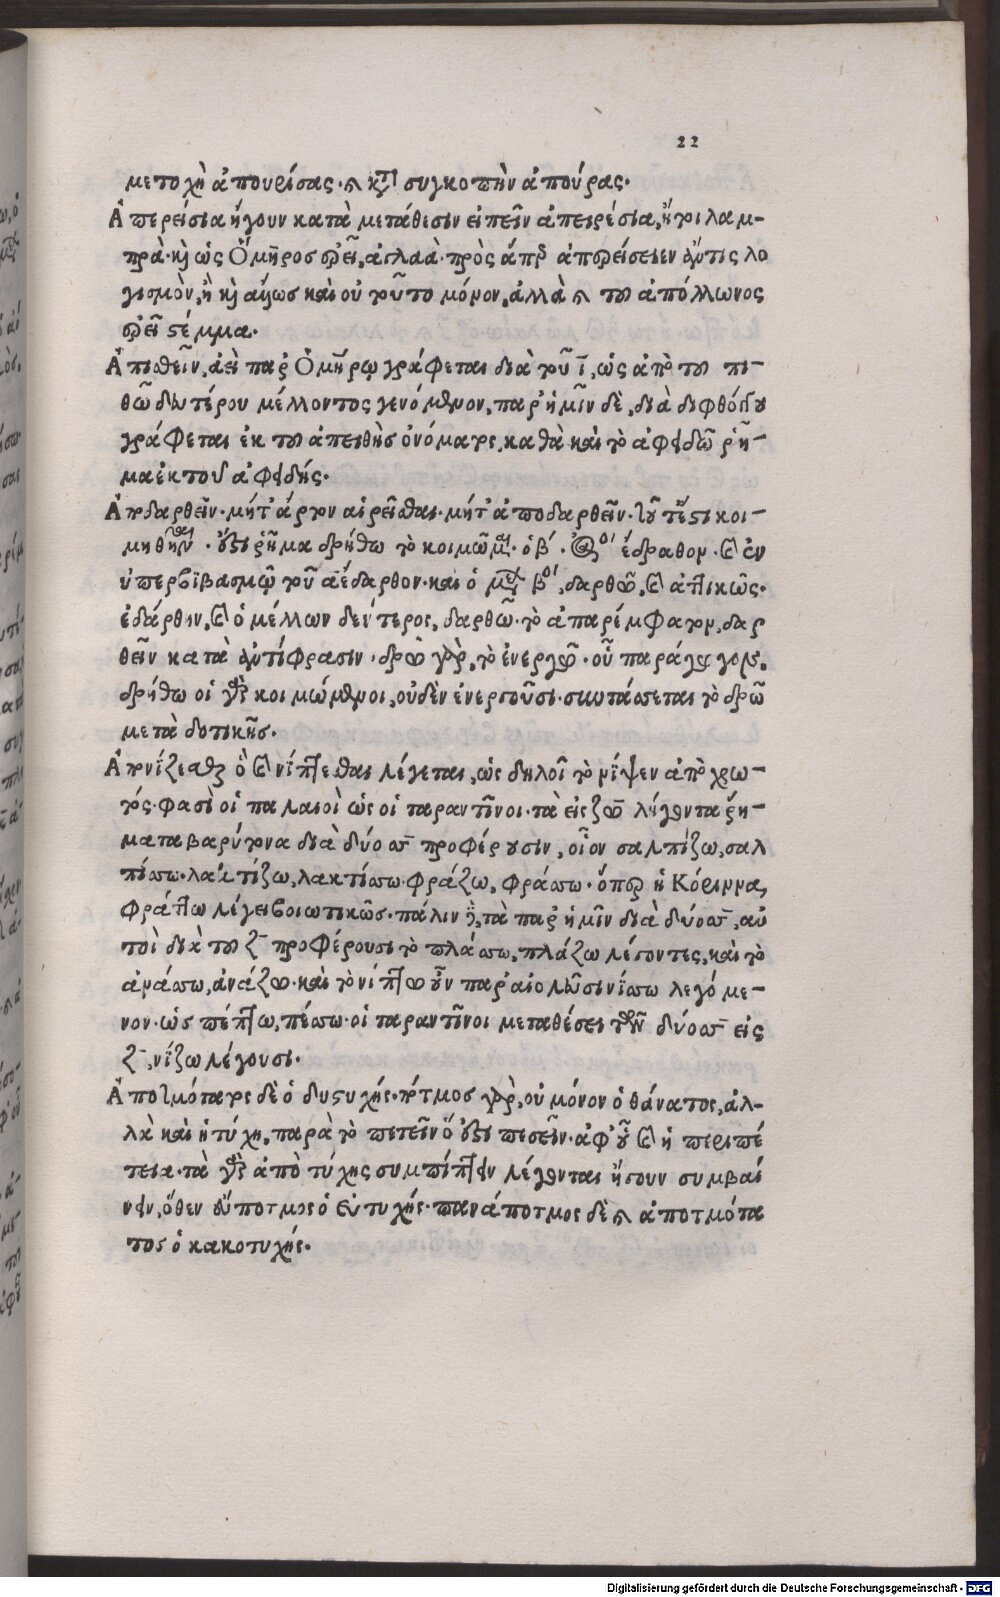 22
μετοχὴ ἀπουρίσας· καὶ κατὰ συγκοπὴν ἀπούρας·
Ἀπερείσια ἤγουν κατὰ μετάθεσιν εἰπεῖν ἀπειρέσια, ἤτοι λαμ-
πρὰ· καὶ ὡς Ὅμηρος ἐρεῖ, ἀγλαὰ· πρὸς ἅπερ ἀπερείσειεν ἄν τις λο
γισμὸν, ἢ καὶ ἄλλως καὶ οὐ τοῦτο μόνον, ἀλλὰ καὶ τοῦ ἀπόλλωνος
ἐρεῖ στέμμα·
Ἀπιθεῖν, ἀεὶ παρ Ὁμήρῳ γράφεται διὰ τοῦ ῑ, ὡς ἀπὸ τοῦ πι-
θῶ δευτέρου μέλλοντος γενόμενον, παρ' ἡμῖν δὲ, διὰ διφθόγγου
γράφεται ἐκ τοῦ ἀπειθὴς ὀνόματος, καθὰ καὶ τὸ ἀφειδῶ ῥῆ-
μα ἐκ τοῦ ἀφειδής·
μηθῆναι · ἔστι ῥῆμα δρήθω τὸ κοιμῶμαι· ὁ β΄ · ἀόριστος ἔδραθον· καὶ ἐν
ὑπερβιβασμῷ τοῦ ᾱ ἔδαρθον· καὶ ὁ μέλλων βος, δαρθῶ, καὶ ἀττικῶς·
ἐδάρθην, καὶ ὁ μέλλων δεύτερος, δαρθῶ· τὸ ἀπαρέμφατον, δαρ
θεῖν κατὰ ἀντίφρασιν· δρῶ γὰρ, τὸ ἐνεργῶ· οὗ παράγωγον,
δρήθω οἱ γὰρ κοιμώμενοι, οὐδὲν ἐνεργοῦσι· συντάσσεται τὸ δρῶ
μετὰ δοτικῆς·
Ἀπονίζεσθαι ὃ καὶ νίπτεσθαι λέγεται, ὡς δηλοῖ τὸ νίψεν ἀπὸ χρω-
τός· φασὶ οἱ παλαιοὶ ὡς οἱ ταραντῖνοι· τὰ εἰς ζω λήγοντα ῥή-
ματα βαρύτονα διὰ δύο σσ προφέρουσιν, οἷον σαλπίζω, σαλ
πίσσω· λακτίζω, λακτίσσω· φράζω, φράσσω· ὅπερ ἡ Κόριννα,
φράττω λέγει βοιωτικῶς· πάλιν δὲ, τὰ παρ ἡμῖν διὰ δύο σσ, αὐ
τοὶ διὰ τοῦ ζ προφέρουσι τὸ πλάσσω, πλάζω λέγοντες, καὶ τὸ
ἀνάσσω, ἀνάζω· καὶ τὸ νίπτω οὖν παρ αἰολεῦσι νίσσω λεγόμε-
νον· ὡς πέπτω, πέσσω· οἱ ταραντῖνοι μεταθέσει τῶν δύο σσ εἰς
ζ, νίζω λέγουσι·
Ἀποτμότατος δὲ ὁ δυστυχής· πότμος γὰρ, οὐ μόνον ὁ θάνατος, ἀλ-
λὰ καὶ ἡ τύχη, παρὰ τὸ πιτεῖν ὅ ἐστι πεσεῖν· ἀφ' οὗ καὶ ἡ περιπέ
τεια· τὰ γὰρ ἀπὸ τύχης συμπίπτειν λέγονται ἤγουν συμβαί
νειν, ὅθεν εὔποτμος ὁ εὐτυχής· πανάποτμος δὲ καὶ ἀποτμότα
τος ὁ κακοτυχής·
Digitalisierung gefördert durch die Deutsche Forschungsgemeinschaft - DFG